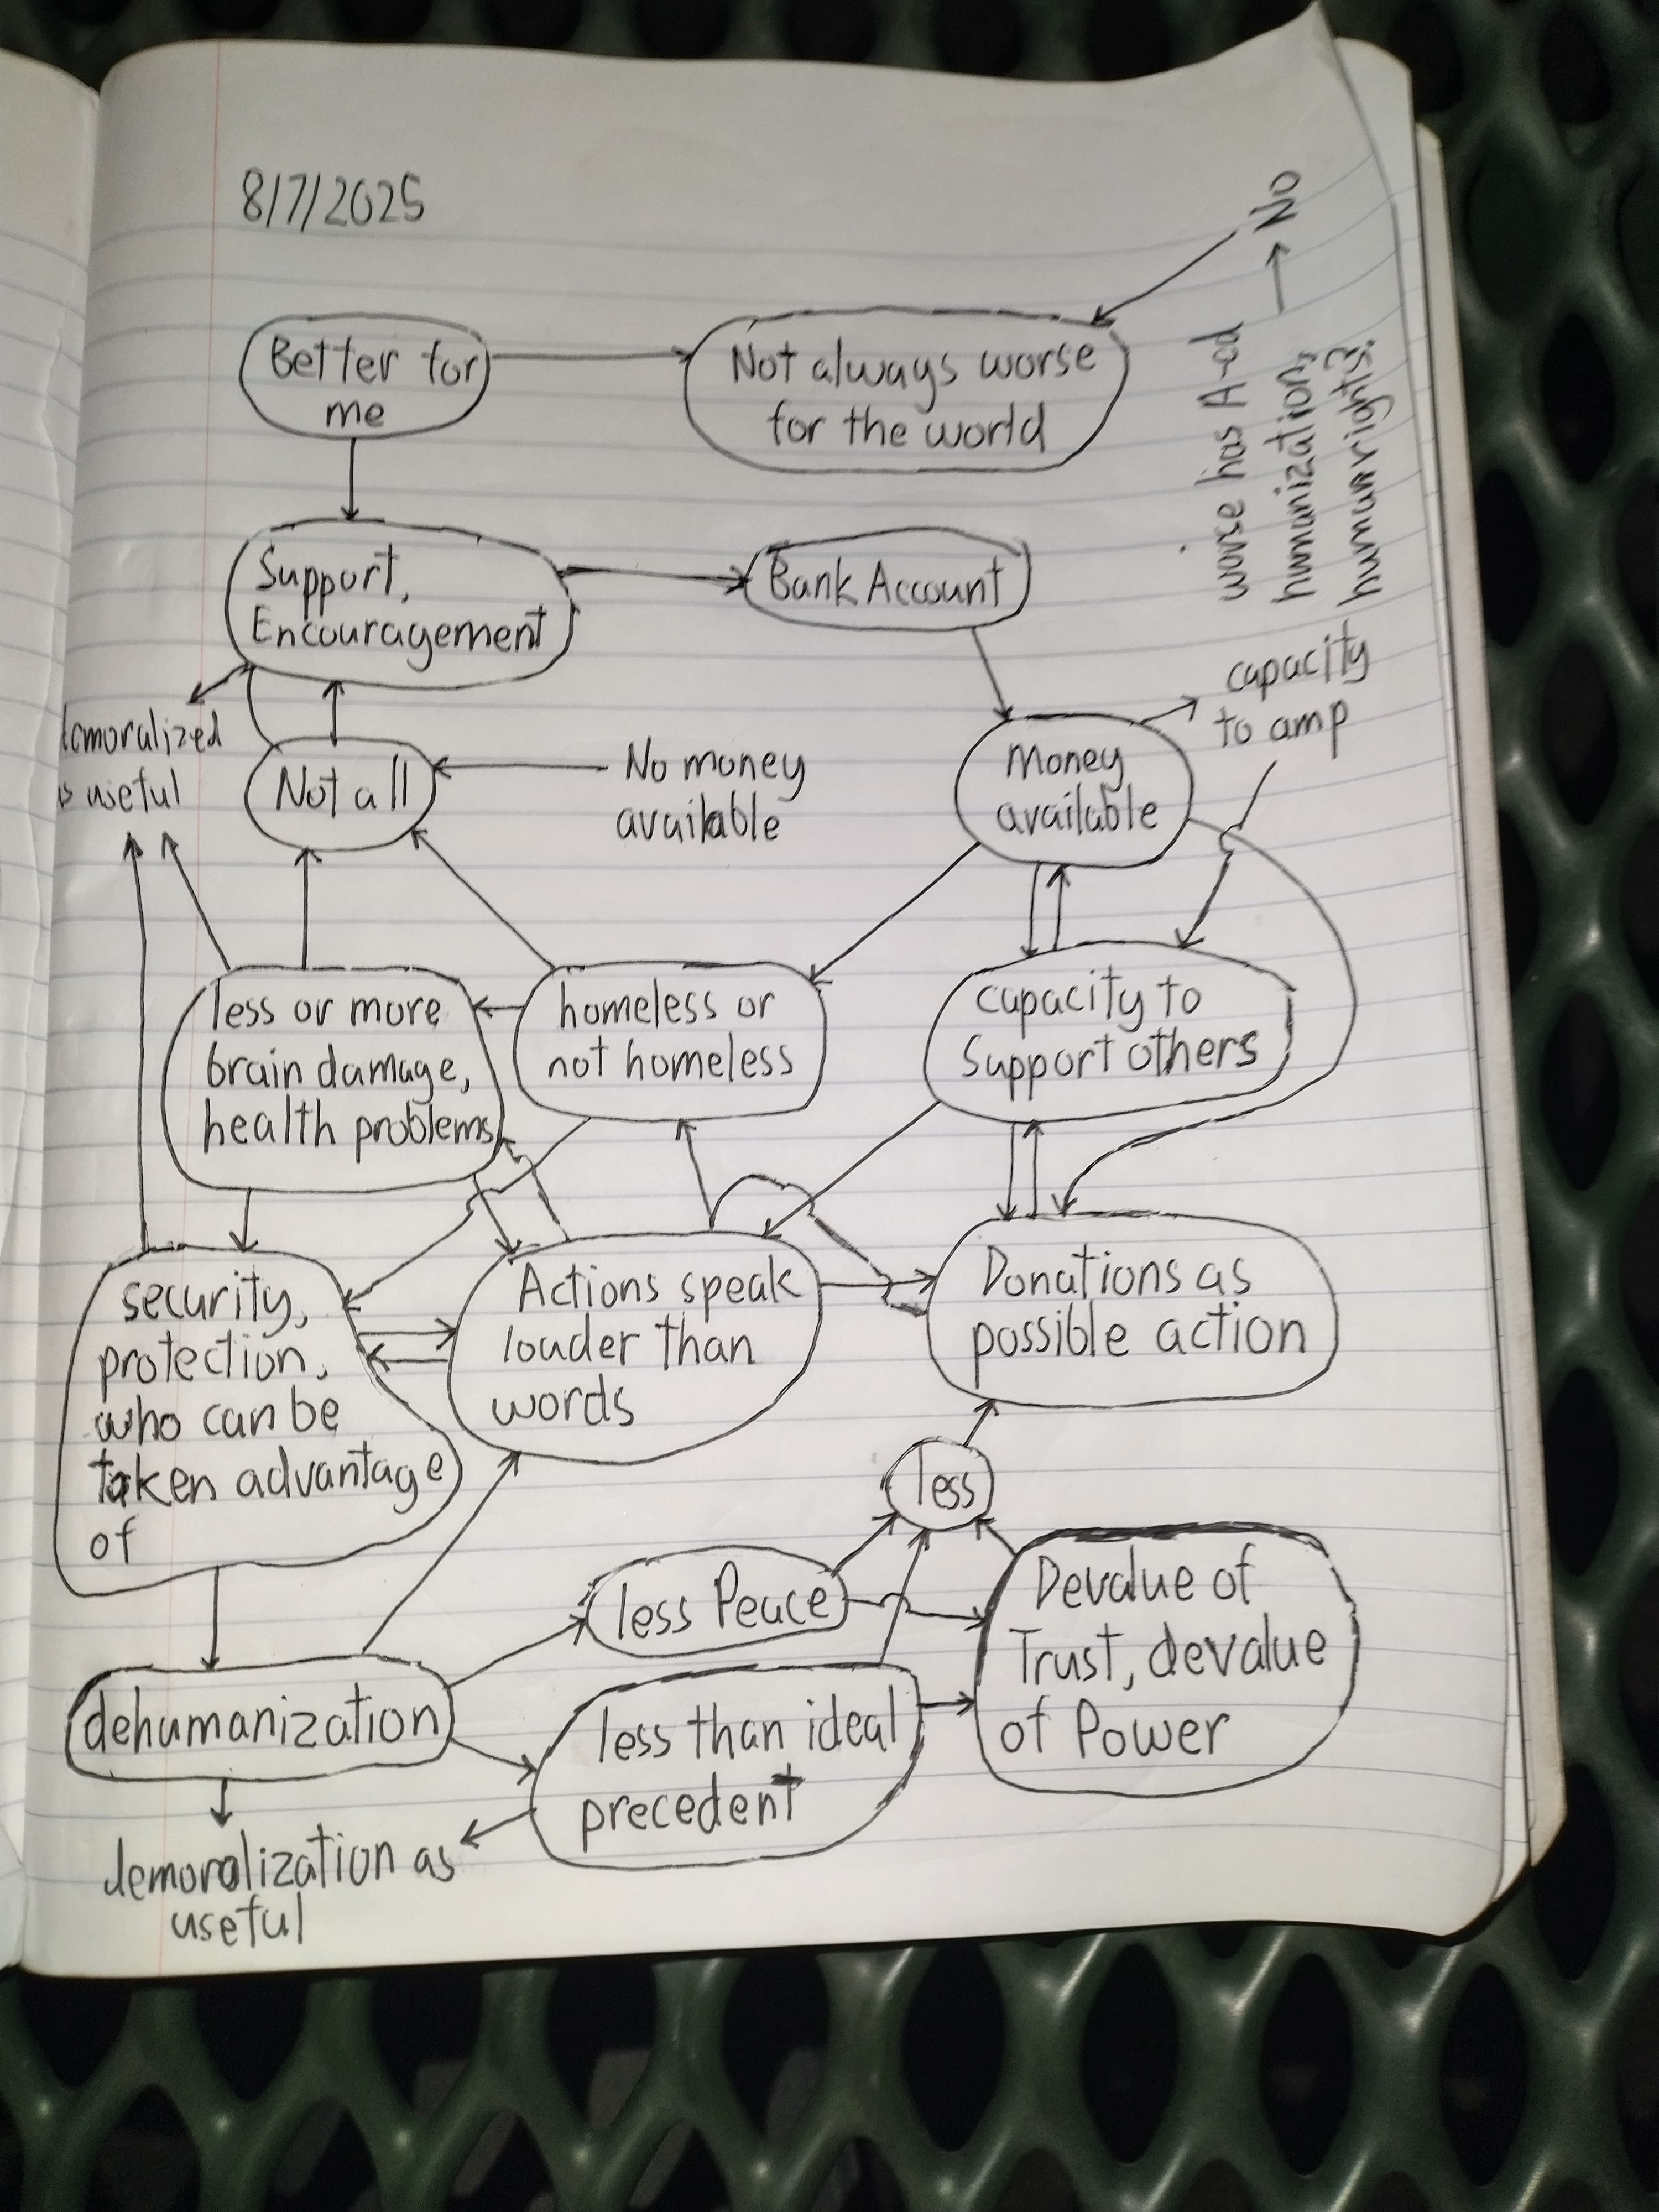 8/7/2025
No
Better for
me
Not always worse
for the world
worse has A-ed
humanization,
human rights?
Support,
Encouragement
Bank Account
capacity
to amp
useful
Not all
No money
available
Money
available
less or more
brain damage,
health problems
homeless or
not homeless
capacity to
Support others
security,
protection,
who can be
taken advantage
of
Actions speak
louder than
words
Donations as
possible action
less
less Peace
Devalue of
Trust, devalue
of Power
dehumanization
less than ideal
precedent
demoralization as
useful